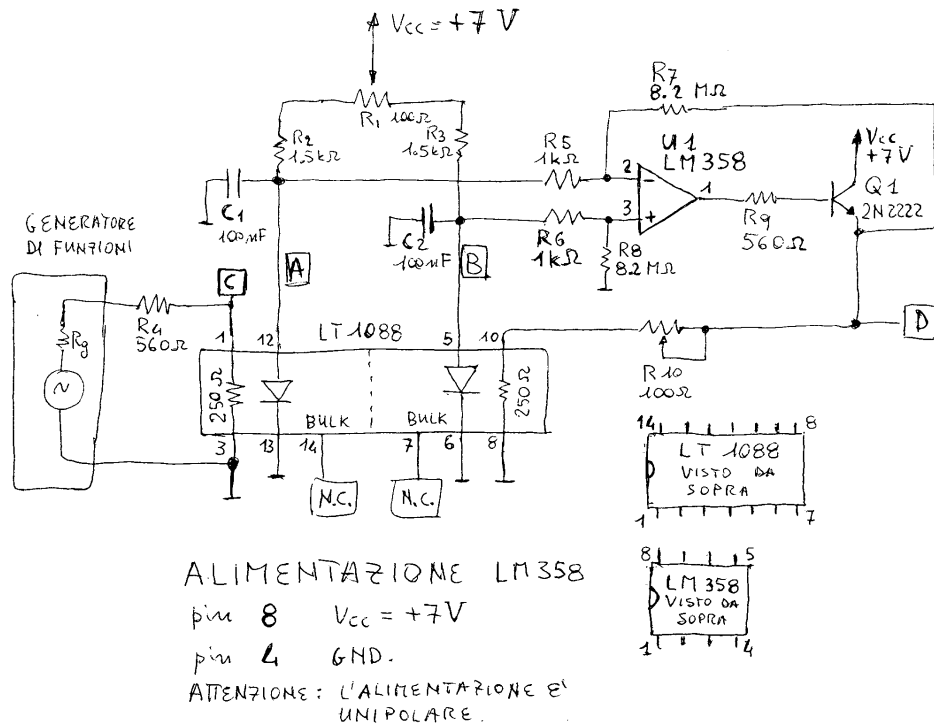 Vcc = +7 V
R1 100Ω
R2 1.5kΩ
R3 1.5kΩ
R7
8.2 MΩ
R5
1kΩ
U1
LM358
2
-
3
+
1
Vcc
+7V
Q1
2N2222
R9
560Ω
C1
100nF
C2
100nF
R6
1kΩ
R8
8.2 MΩ
GENERATORE
DI FUNZIONI
A
B
C
D
Rg
~
R4
560Ω
1
12
LT 1088
5
10
250Ω
250Ω
BULK
BULK
3
13
14
7
6
8
N.C.
N.C.
R10
100Ω
14
8
LT 1088
VISTO DA
SOPRA
1
7
8
5
LM 358
VISTO DA
SOPRA
1
4
ALIMENTAZIONE LM358
pin 8 Vcc = +7V
pin 4 GND.
ATTENZIONE: L'ALIMENTAZIONE E'
UNIPOLARE.